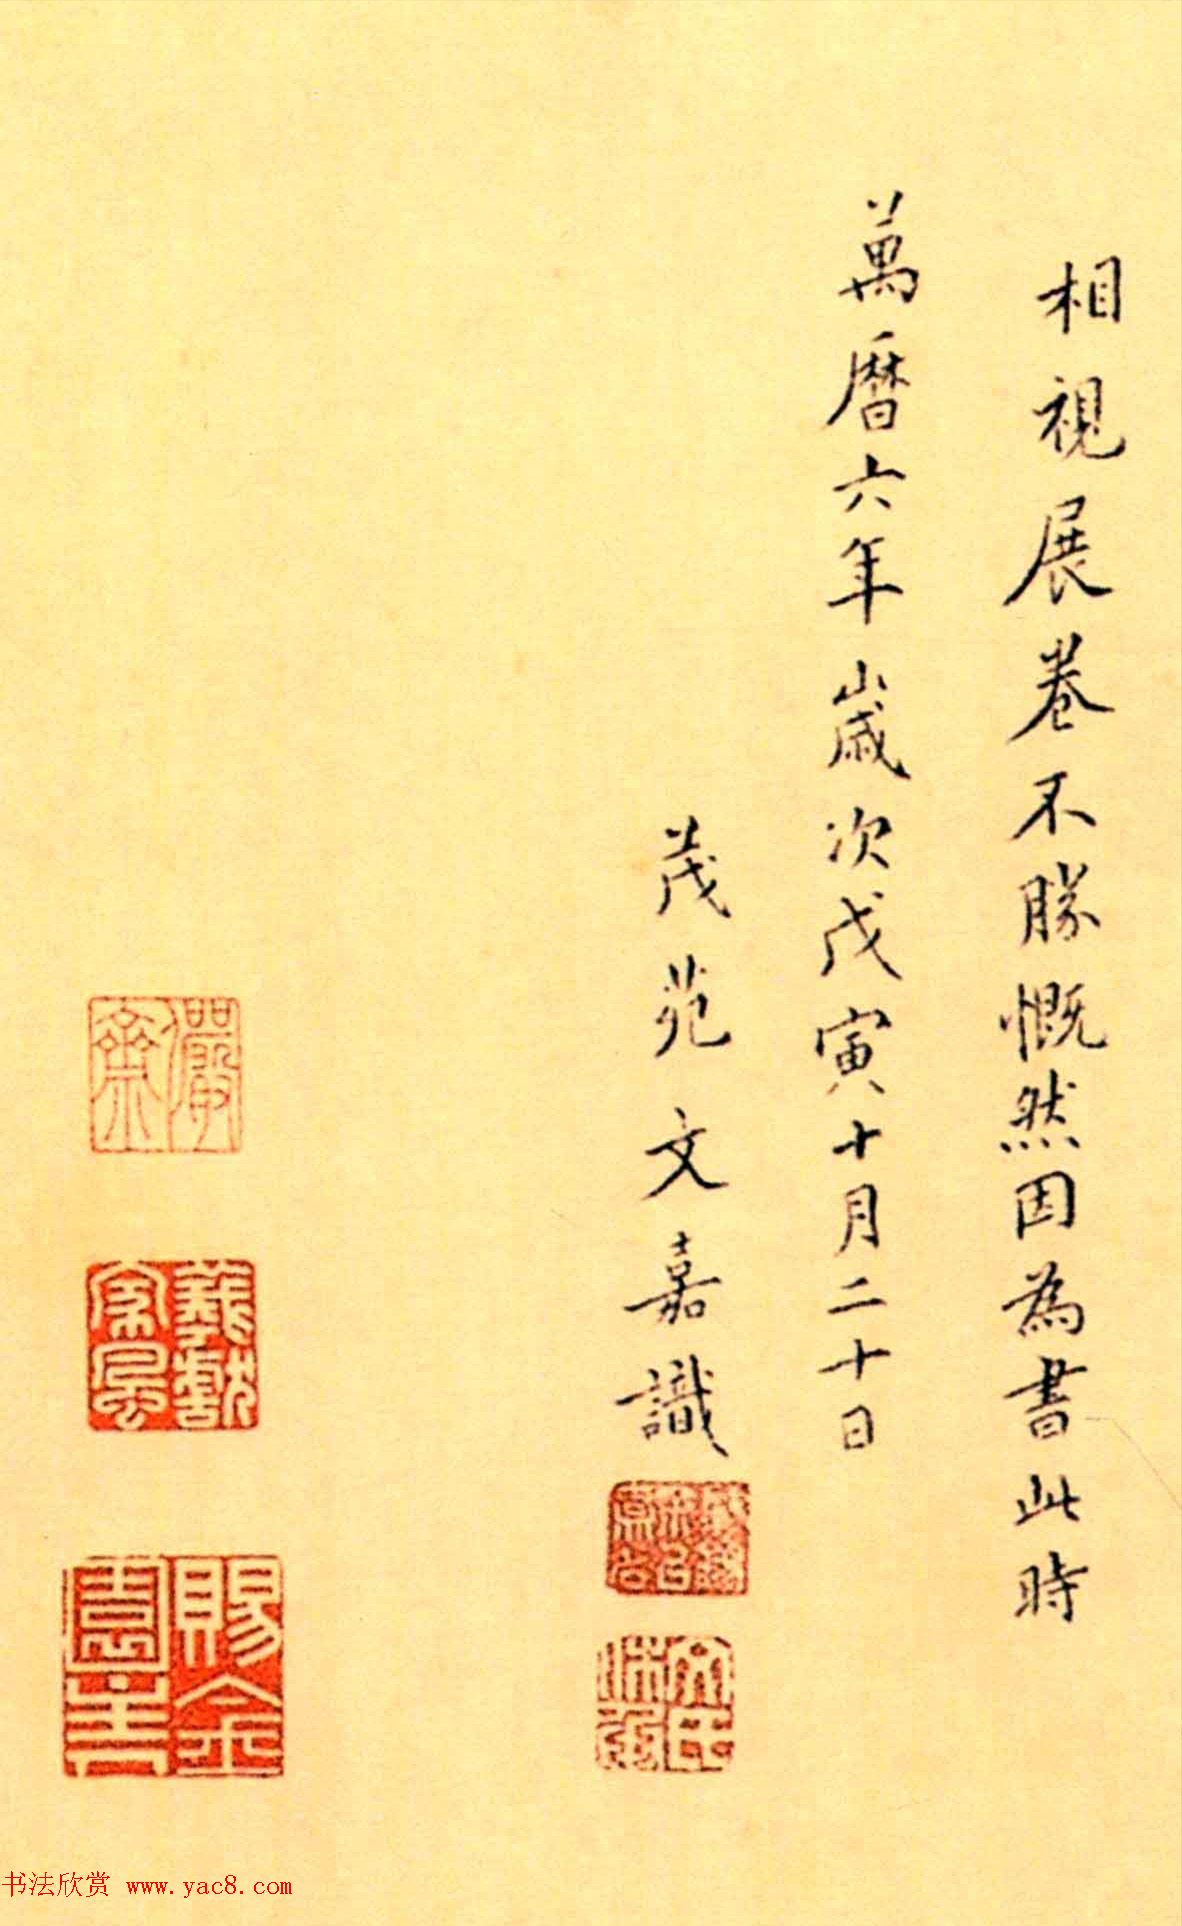 相視展卷不勝慨然因為書此時
萬曆六年歲次戊寅十月二十日
茂苑文嘉識
文氏休承
儼齋
賜金
書法欣赏 www.yac8.com